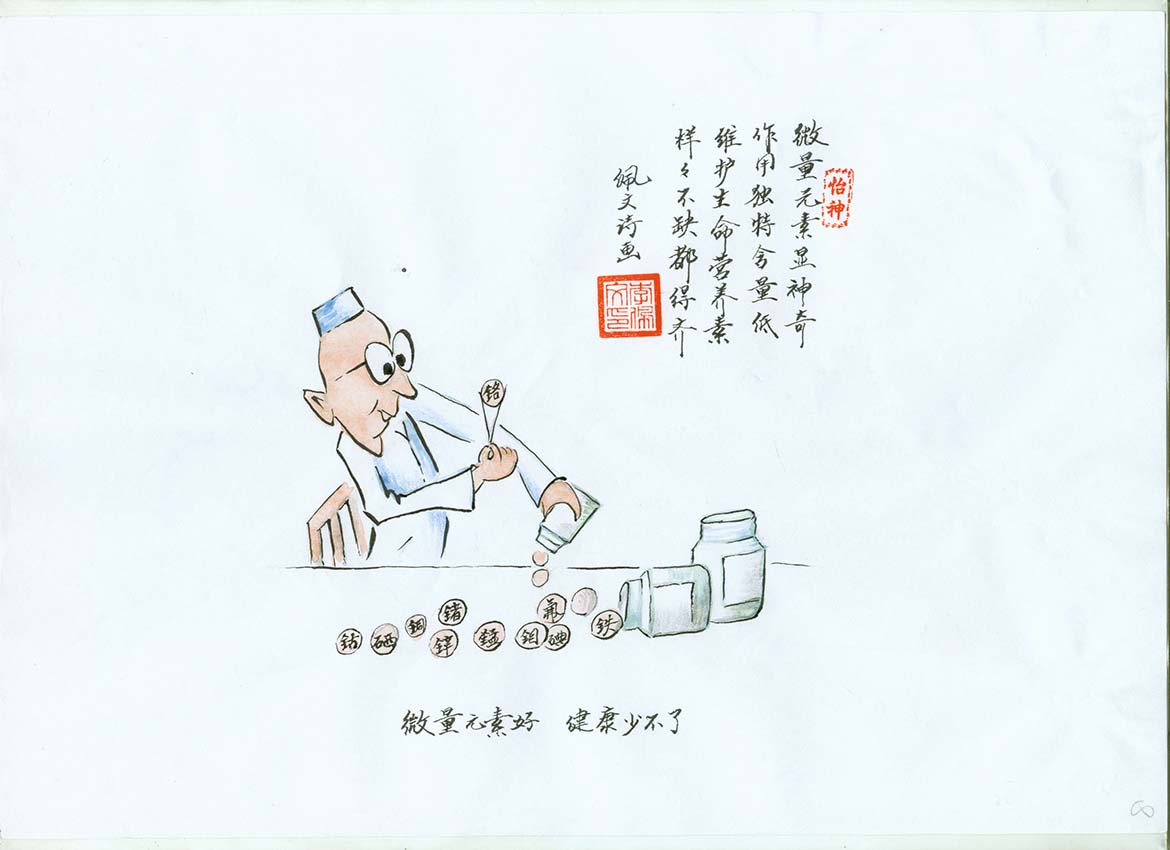 怡神
微量元素显神奇
作用独特含量低
维护生命营养素
样々不缺都得齐
佩文诗画
李佩文印
铬
钴
硒
铜
锗
锌
锰
钼
碘
氟
铁
微量元素好 健康少不了